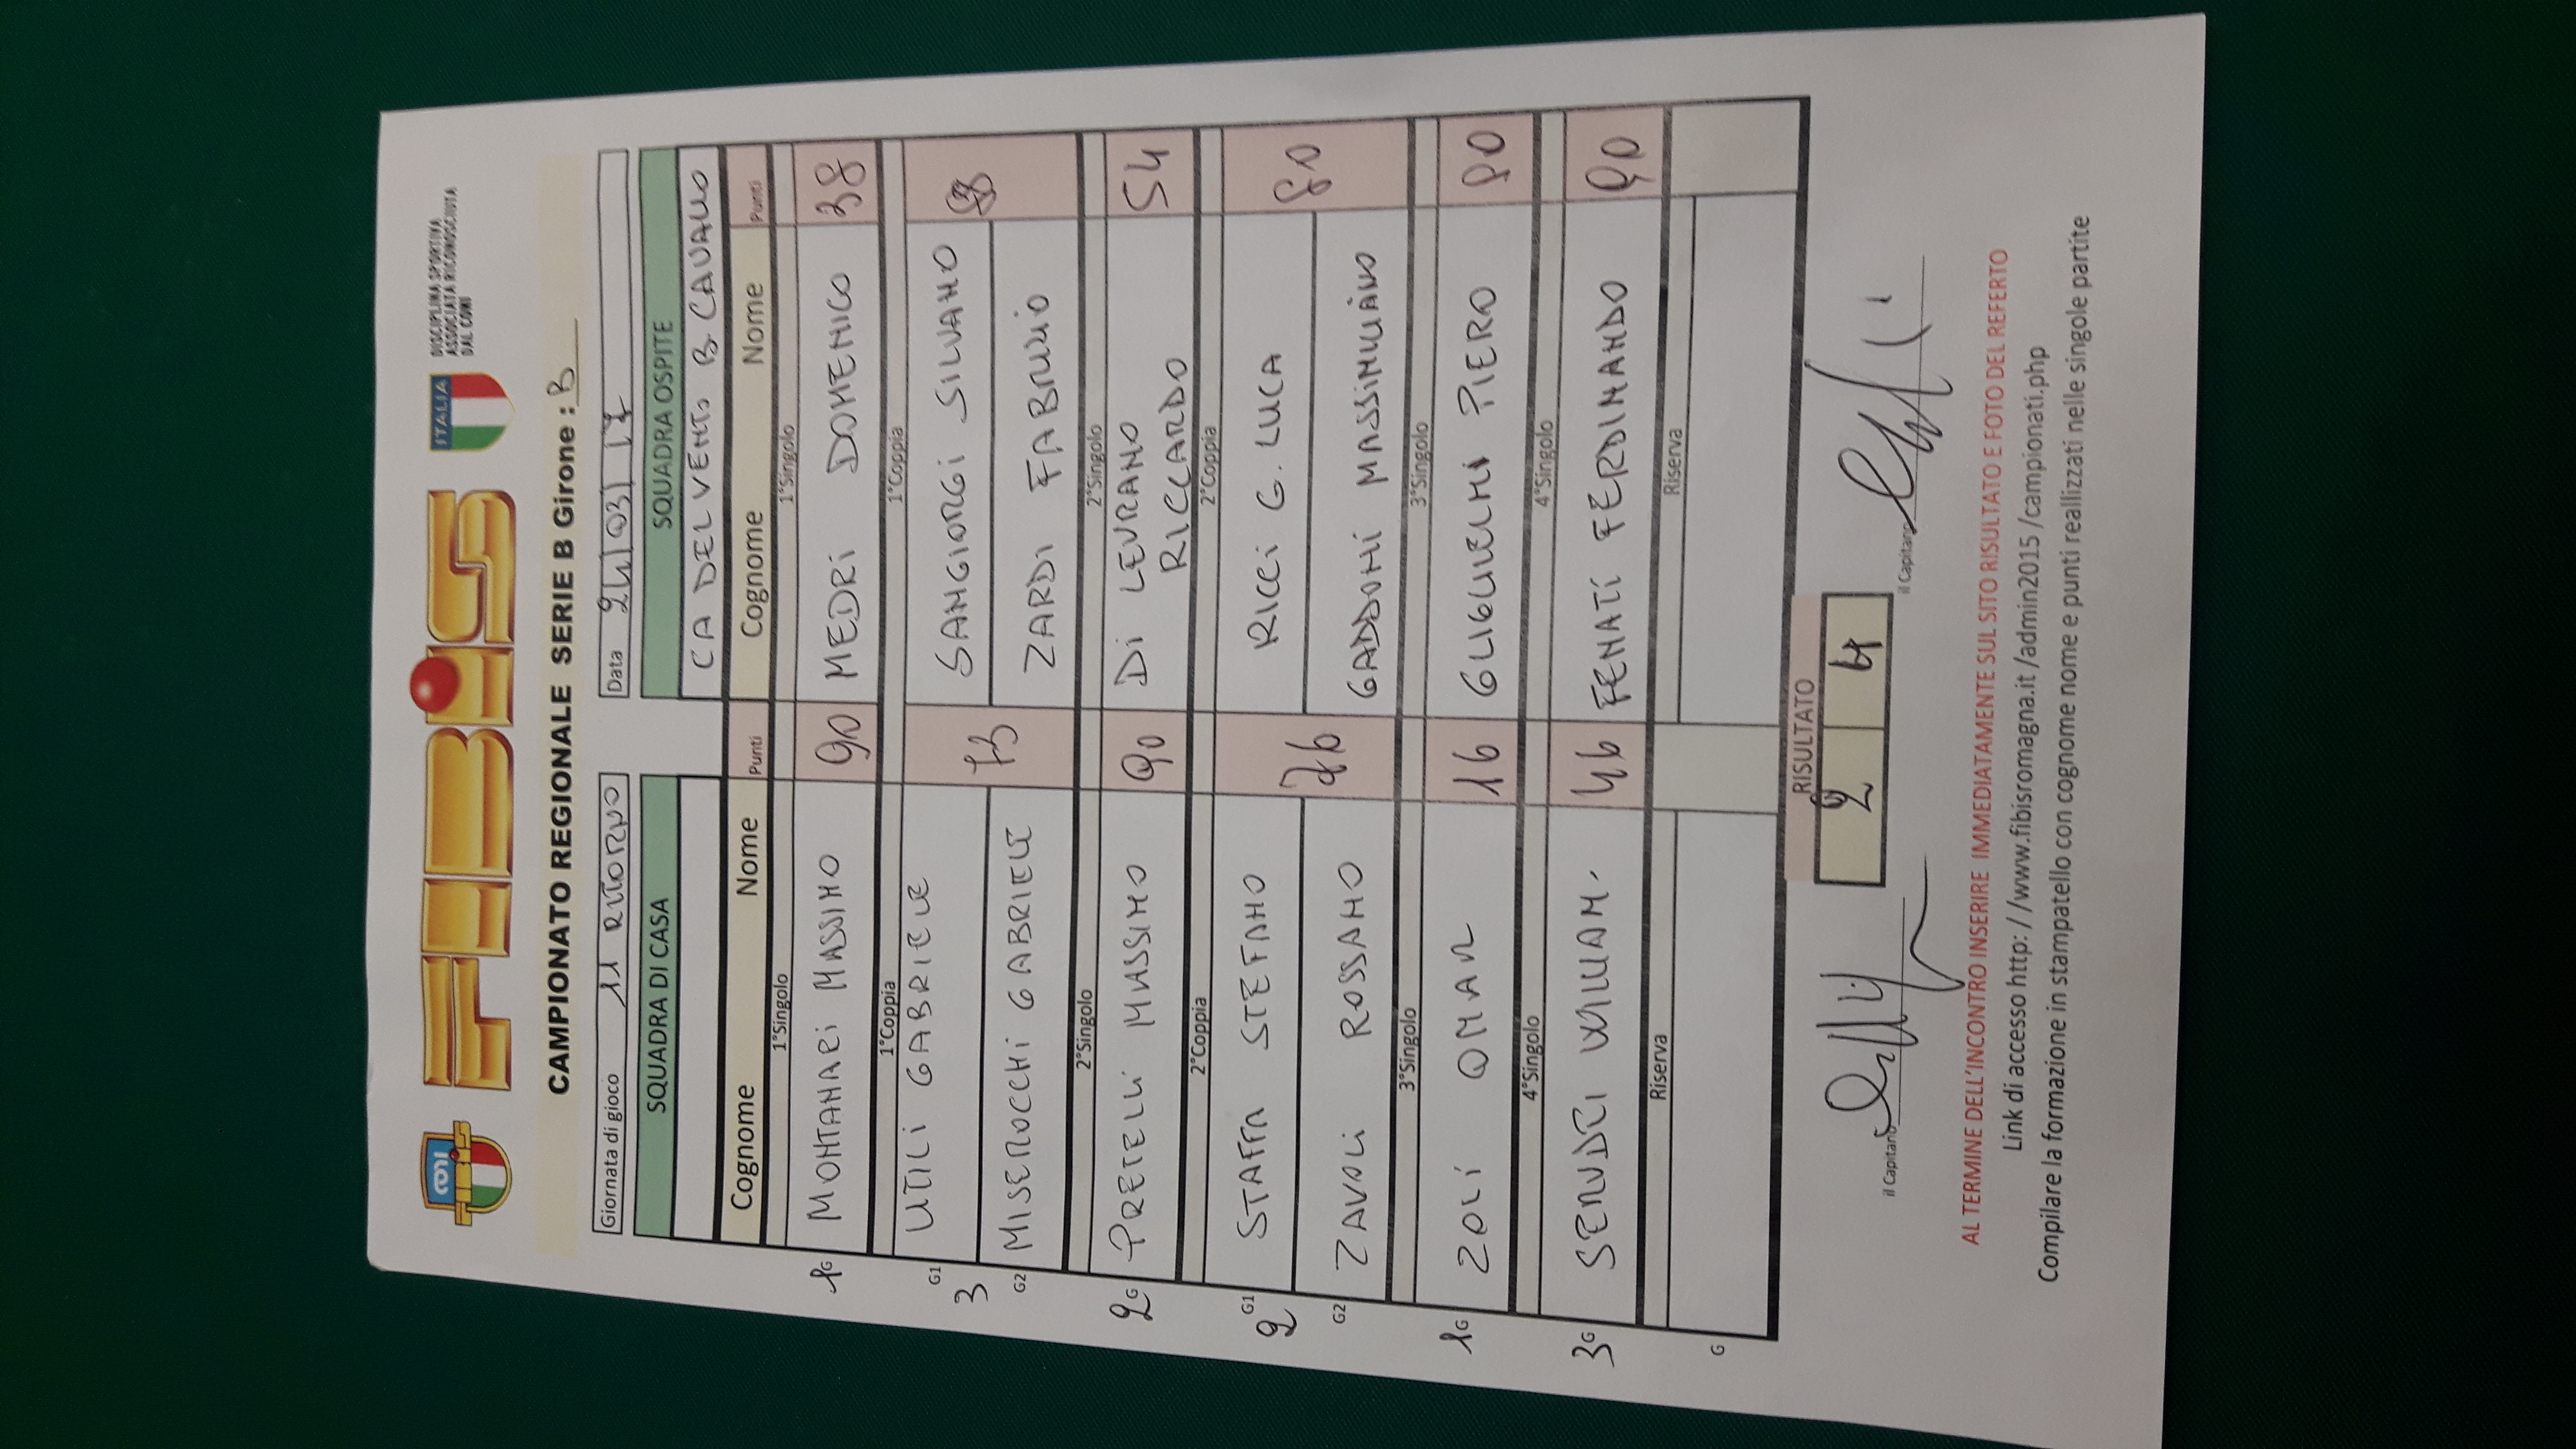 FIBIS
ITALIA
DISCIPLINA SPORTIVA
ASSOCIATA RICONOSCIUTA
DAL CONI
CAMPIONATO REGIONALE SERIE B Girone : B
Giornata di gioco 11 RITORNO Data 24/03/17
SQUADRA DI CASA SQUADRA OSPITE
CA DEL VENTO B. CAVALLO
Cognome Nome Punti Cognome Nome Punti
1°Singolo 1°Singolo
1G MONTANARI MASSIMO 90 MEDRI DOMENICO 38
1°Coppia 1°Coppia
G1 UTILI GABRIELE SANGIORGI SILVANO
3 73
G2 MISEROCCHI GABRIELE ZARDI FABRIZIO
2°Singolo 2°Singolo
2G PRETELLI MASSIMO 90 DI LEVRANO RICCARDO 54
2°Coppia 2°Coppia
G1 STAFFA STEFANO RICCI G. LUCA
2 76 80
G2 ZAVOLI ROSSANO GADDONI MASSIMILIANO
3°Singolo 3°Singolo
1G ZOLI OMAR 16 GLIGLIELMI PIERO 90
4°Singolo 4°Singolo
3G SERVIDEI WILLIAM. 46 FENATI FERDINANDO 90
Riserva Riserva
G
RISULTATO
2 4
il Capitano il Capitano
AL TERMINE DELL'INCONTRO INSERIRE IMMEDIATAMENTE SUL SITO RISULTATO E FOTO DEL REFERTO
Link di accesso http: / /www.fibisromagna.it /admin2015 /campionati.php
Compilare la formazione in stampatello con cognome nome e punti reallizzati nelle singole partite